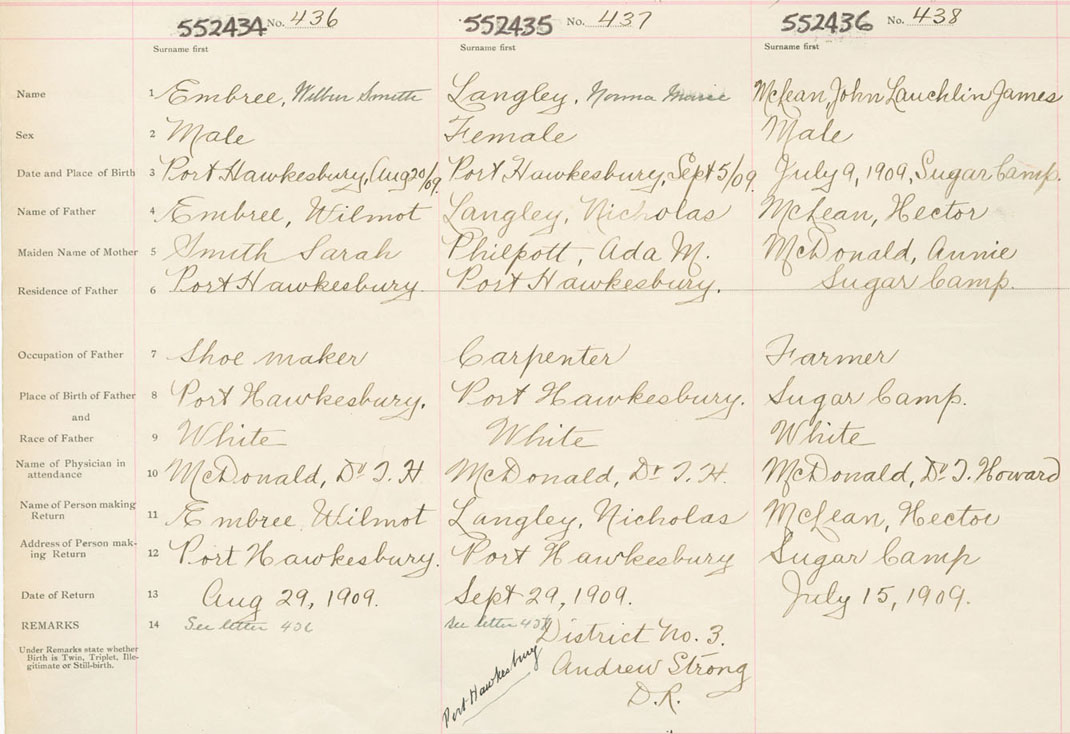 552434 No. 436 552435 No. 437 552436 No. 438
Surname first Surname first Surname first
Name 1 Embree, Wilbur Smith Langley, Norma Marie McLean, John Lauchlin James
Sex 2 Male Female Male
Date and Place of Birth 3 Port Hawkesbury, Aug 20/09. Port Hawkesbury, Sept 5/09. July 9, 1909, Sugar Camp.
Name of Father 4 Embree, Wilmot Langley, Nicholas McLean, Hector
Maiden Name of Mother 5 Smith Sarah Philpott, Ada M. McDonald, Annie
Residence of Father 6 Port Hawkesbury. Port Hawkesbury. Sugar Camp.
Occupation of Father 7 Shoe maker Carpenter Farmer
Place of Birth of Father 8 Port Hawkesbury. Port Hawkesbury. Sugar Camp.
and
Race of Father 9 White White White
Name of Physician in
attendance 10 McDonald, Dr T. H McDonald, Dr T. H. McDonald, Dr. T. Howard
Name of Person making
Return 11 Embree, Wilmot Langley, Nicholas McLean, Hector
Address of Person mak-
ing Return 12 Port Hawkesbury. Port Hawkesbury Sugar Camp
Date of Return 13 Aug 29, 1909. Sept 29, 1909. July 15, 1909.
REMARKS 14 See letter 436 see letter 437 District No. 3.
Under Remarks state whether
Birth is Twin, Triplet, Ille-
gitimate or Still-birth.
Port Hawkesbury
Andrew Strong
D.R.